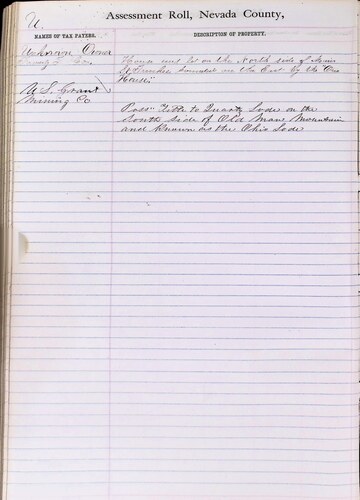 U.
Assessment Roll, Nevada County,
NAMES OF TAX PAYERS.
DESCRIPTION OF PROPERTY.
Unknown Owner
House and lot on the North side of Main
St Truckee bounded on the East by the
House
U. S. Grant
Mining Co
Poss Title to Quartz Lode on the
South side of Old Man Mountain
and known as the Ohio Lode